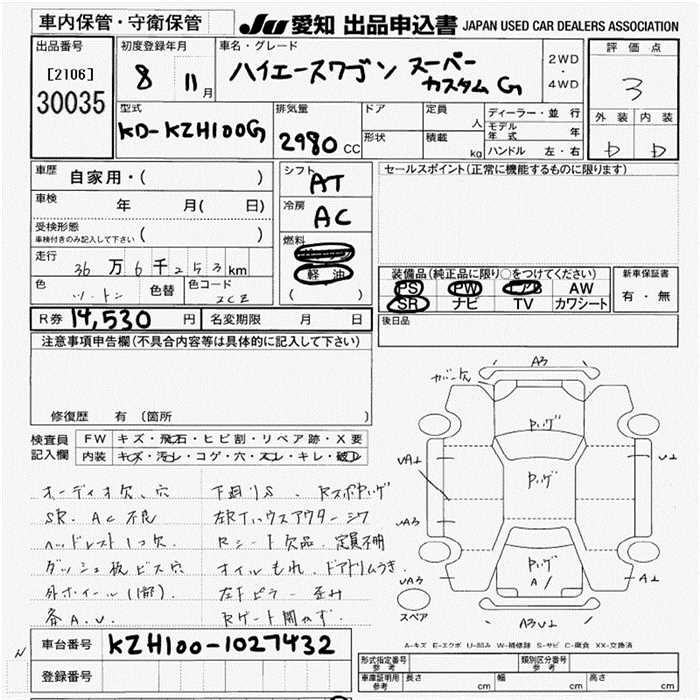 車内保管・守衛保管
JU 愛知 出品申込書 JAPAN USED CAR DEALERS ASSOCIATION
出品番号
[2106]
30035
初度登録年月
8 11月
車名・グレード
ハイエースワゴン スーパー
カスタム G
2WD
・
4WD
評価点
3
外装 内装
D D
型式
KD-KZH100G
排気量
2980 CC
ドア
形状
定員
人
積載
kg
ディーラー・並行
モデル
年式 年
ハンドル 左・右
車歴
自家用・( )
車検
年 月( 日)
受検形態
車検付きのみ記入して下さい ( )
走行
36万6千253km
色
ツートン
色替
色コード
2CZ
シフト
AT
冷房
AC
燃料
軽油
( )
セールスポイント(正常に機能するものに限ります)
装備品(純正品に限り○をつけてください)
PS PW AW
SR ナビ TV カワシート
新車保証書
有・無
R券 14,530 円
名変期限 月 日
後日品
注意事項申告欄(不具合内容等は具体的に記入して下さい)
修復歴 有 (箇所
検査員
記入欄
FW キズ・飛石・ヒビ割・リペア跡・X要
内装 キズ・汚レ・コゲ・穴・スレ・キレ・破レ
オーディオ欠、穴
SR. AC不良
ヘッドレスト1コ欠
ダッシュ板ビス穴
外ホイール(1部)
各A.U.
下廻りS.
左Rタイハウスアウターシワ
Rシート欠品、定員不明
オイルもれ、ドアトリムうき
左Fピラー歪み
Rゲート開かず
A3
カバー欠
UA3
U⊥
A⊥
A3U⊥
スペア
A-キズ E-エクボ U-凹み W-補修跡 S-サビ C-腐食 XX-交換済
車台番号 KZH100-1027432
登録番号
形式指定番号
参考
類別区分番号
参考
車庫証明用
参考
長さ cm
幅 cm
高さ cm